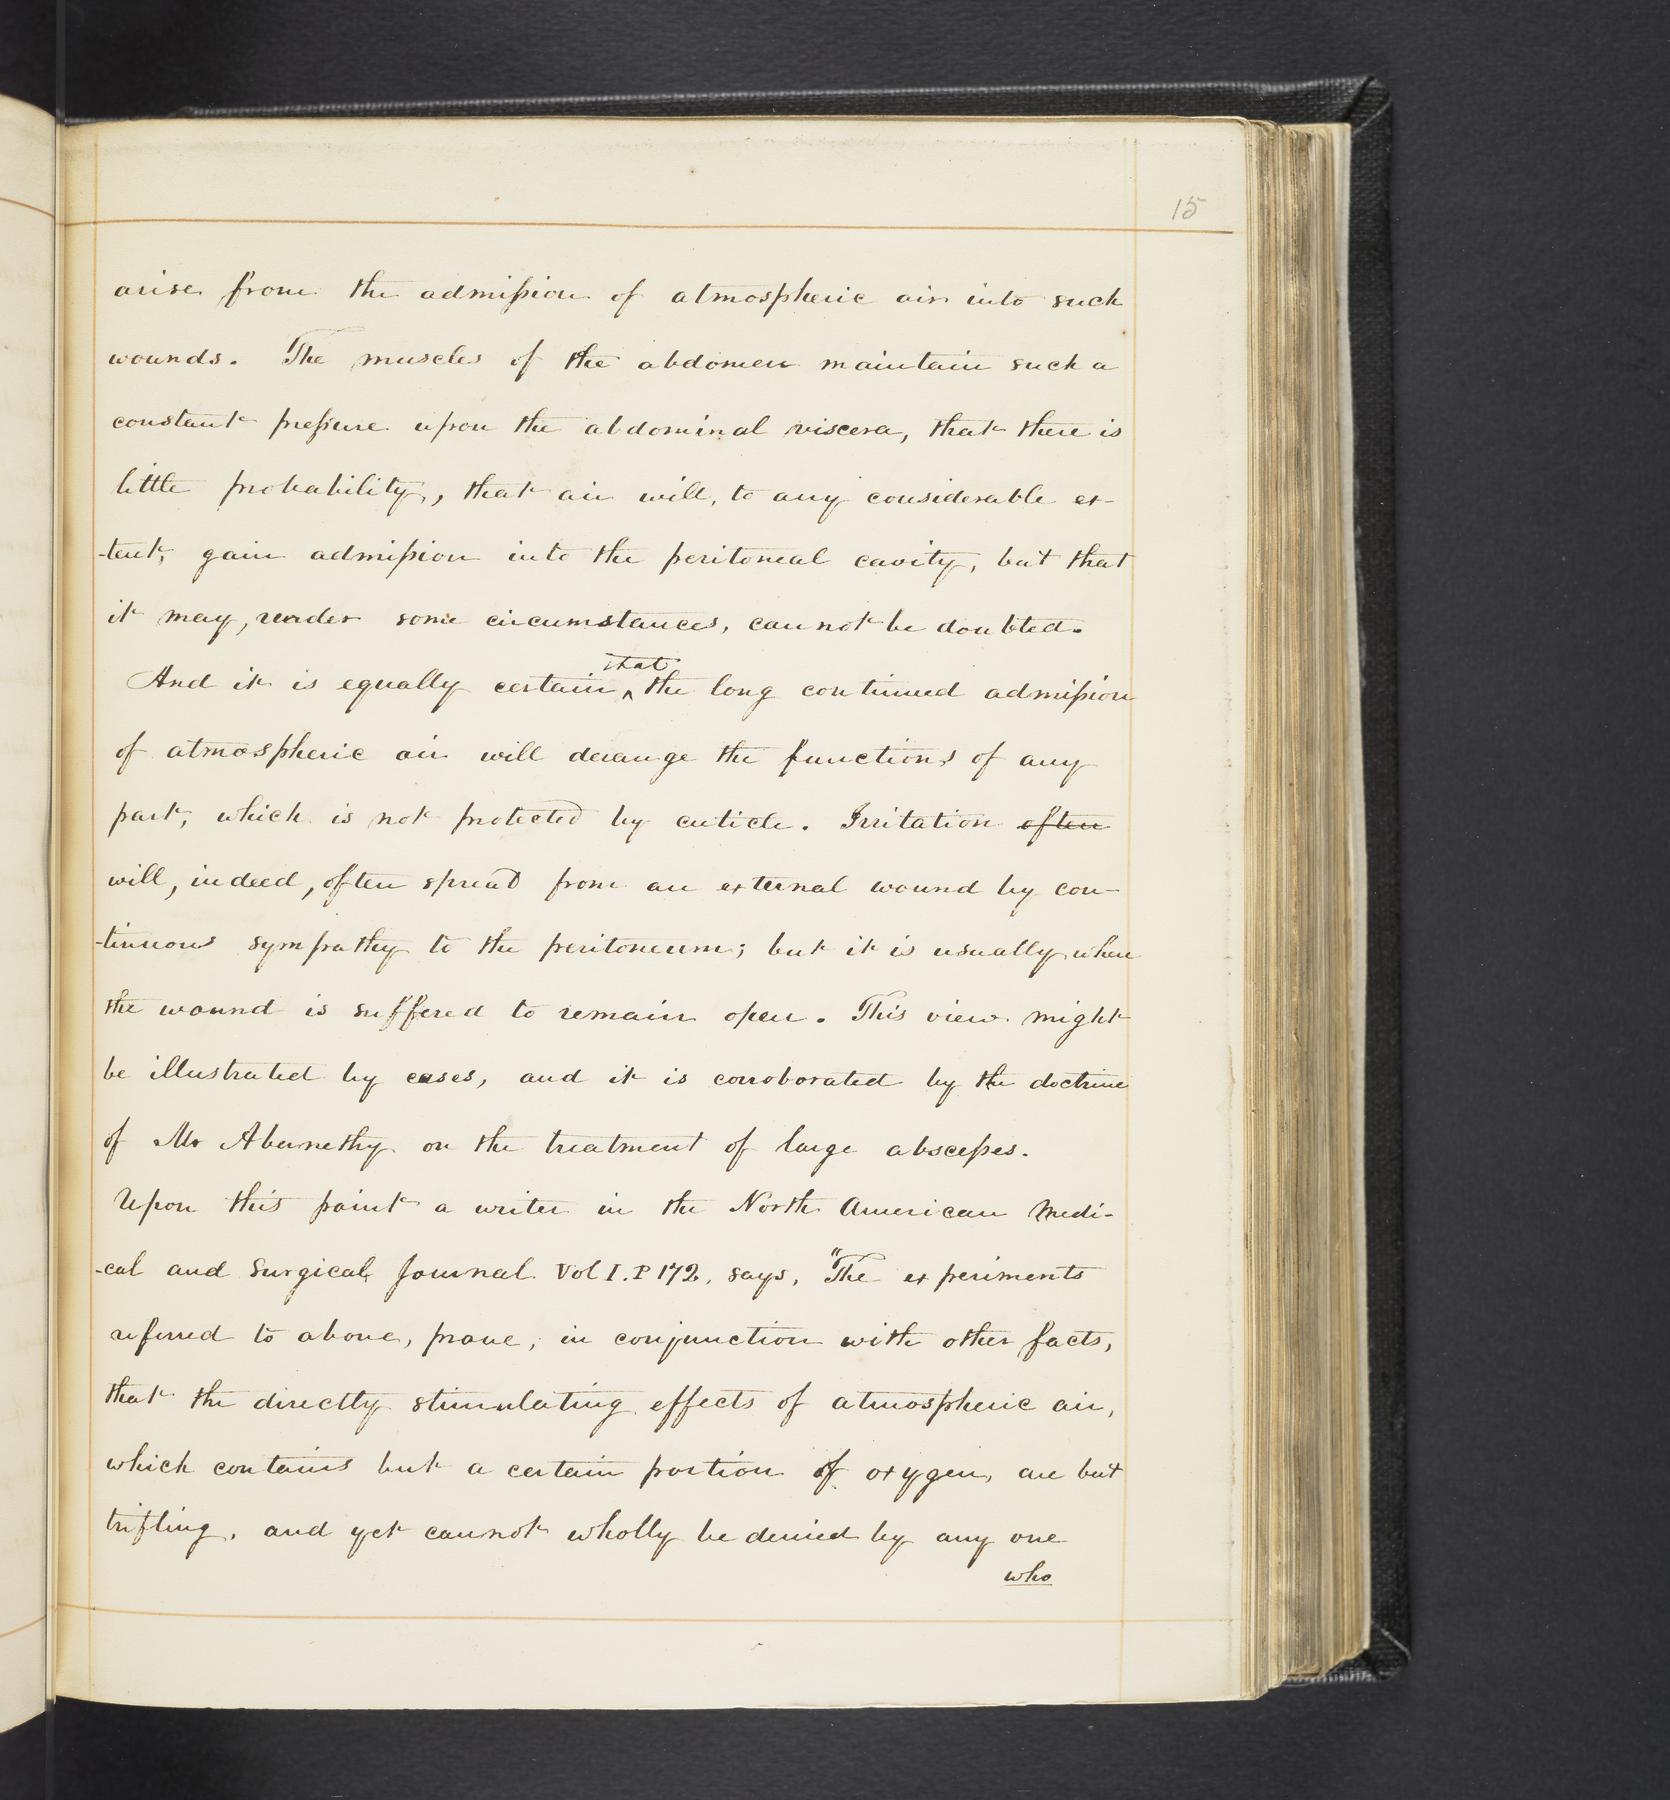 15
arise from the admission of atmospheric air into such
wounds. The muscles of the abdomen maintain such a
constant pressure upon the abdominal viscera, that there is
little probability, that air will, to any considerable ex-
-tent, gain admission into the peritoneal cavity, but that
it may, under some circumstances, cannot be doubted.
And it is equally certain ‸that the long continued admission
of atmospheric air will derange the functions of any
part, which is not protected by cuticle. Irritation often
will, indeed, often spread from an external wound by con-
-tinuous sympathy to the peritoneum; but it is usually when
the wound is suffered to remain open. This view might
be illustrated by cases, and it is corroborated by the doctrine
of Mr Abernethy on the treatment of large abscesses.
Upon this point a writer in the North American Medi-
-cal and Surgical Journal Vol I. P 172, says, "The experiments
referred to above, prove, in conjunction with other facts,
that the directly stimulating effects of atmospheric air,
which contains but a certain portion of oxygen, are but
trifling, and yet cannot wholly be denied by any one
who